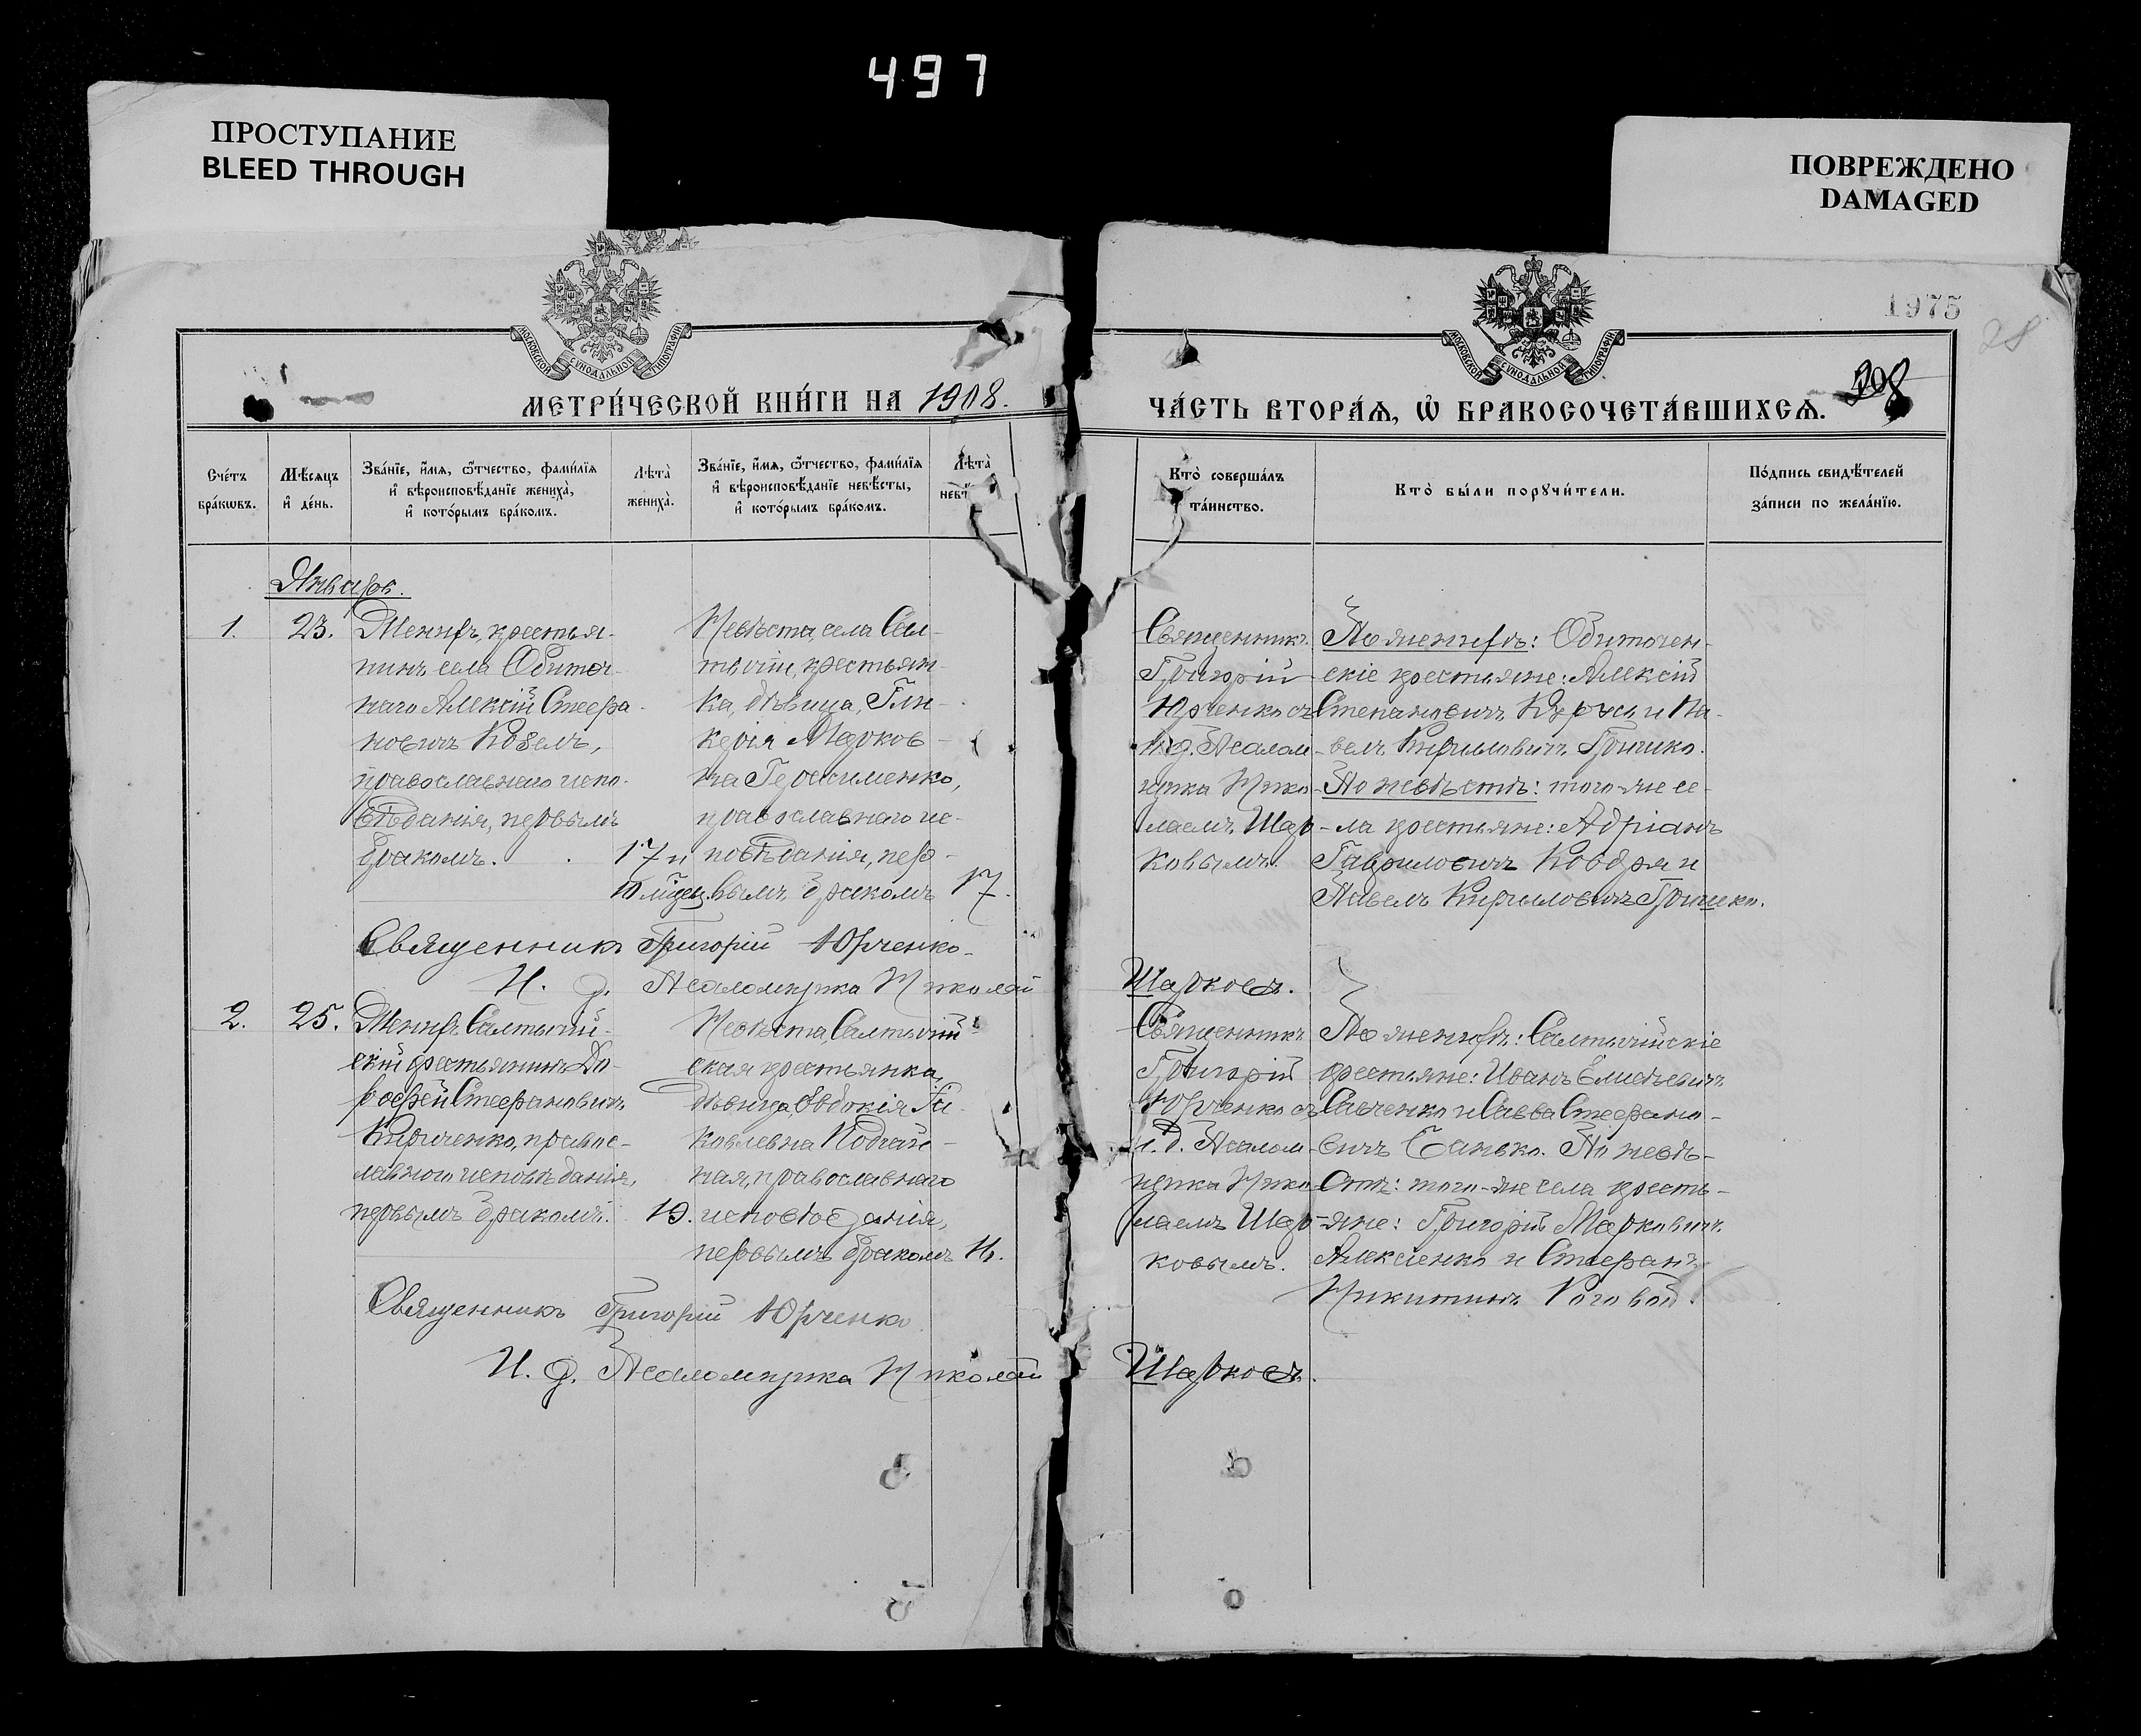 497
ПРОСТУПАНИЕ
BLEED THROUGH
ПОВРЕЖДЕНО
DAMAGED
МОСКОВСКОЙ СѴНОДАЛЬНОЙ ТИПОГРАФІИ
МОСКОВСКОЙ СѴНОДАЛЬНОЙ ТИПОГРАФІИ
1975
28
МЕТРИ́ЧЕСКОЙ КНИ́ГИ НА 1908.
ЧА́СТЬ ВТОРА́Ѧ, Ѡ БРАКОСОЧЕТА́ВШИХСѦ.
Сче́тъ
бра́кωвъ.
Мѣ́сѧцъ
и҆ де́нь.
Зва́нїе, и҆́мѧ, ѻ҆́тчество, фами́лїѧ
и҆ вѣроисповѣ́данїе жениха̀,
и҆ кото́рымъ бра́комъ.
Лѣта̀
жениха̀.
Зва́нїе, и҆́мѧ, ѻ҆́тчество, фами́лїѧ
и҆ вѣроисповѣ́данїе невѣ́сты,
и҆ кото́рымъ бра́комъ.
Лѣта̀
невѣ́
Кто̀ соверша́лъ
та́инство.
Кто̀ бы́ли порꙋчи́тели.
По́дпись свидѣ́телей
за́писи по жела́нїю.
Январь.
1.
23.
Женихъ, крестья-
нинъ села Обиточ-
наго Алексій Стефа-
новичъ Козелъ,
православнаго испо-
вѣданія, первымъ
бракомъ.
17 и
10 мѣсяц.
Невѣста, села Сал-
тычіи, крестьян-
ка, дѣвица, Гли-
керія Марков-
на Герасименко,
православнаго ис-
повѣданія, пер-
вымъ бракомъ
17.
Священникъ
Григорій
Юрченко съ
и. д. Псалом-
щика Нико-
лаемъ Шар-
ковымъ.
По женихѣ: Обиточен-
скіе крестьяне: Алексій
Степановичъ Курусь и Па-
велъ Кириловичъ Гришко.
По невѣстѣ: того-же се-
ла крестьяне: Адріанъ
Гавриловичъ Ковдря и
Павелъ Кириловичъ Гришко.
Священникъ Григорій Юрченко
И. д. Псаломщика Николай Шарковъ.
2.
25.
Женихъ Салтычій-
скій крестьянинъ До-
рофей Стефановичъ
Кириченко, правос-
лавного исповѣданія,
первымъ бракомъ.
19.
Невѣста, Салтычій-
ская крестьянка,
дѣвица, Евдокія Яковлевна
ная, православнаго
исповѣданія,
первымъ бракомъ
Священникъ
Григорій
Юрченко съ
и. д. Псалом-
щика Нико-
лаемъ Шар-
ковымъ.
По женихѣ: Салтычійскіе
крестьяне: Иванъ Елисѣевичъ
Савченко и Савва Стефано-
вичъ Санько. По невѣ-
стѣ: того-же села кресть-
яне: Григорій Марковичъ
Алексіенко и Стефанъ
Никитинъ Роговой.
Священникъ Григорій Юрченко
И. д. Псаломщика Николай Шарковъ.